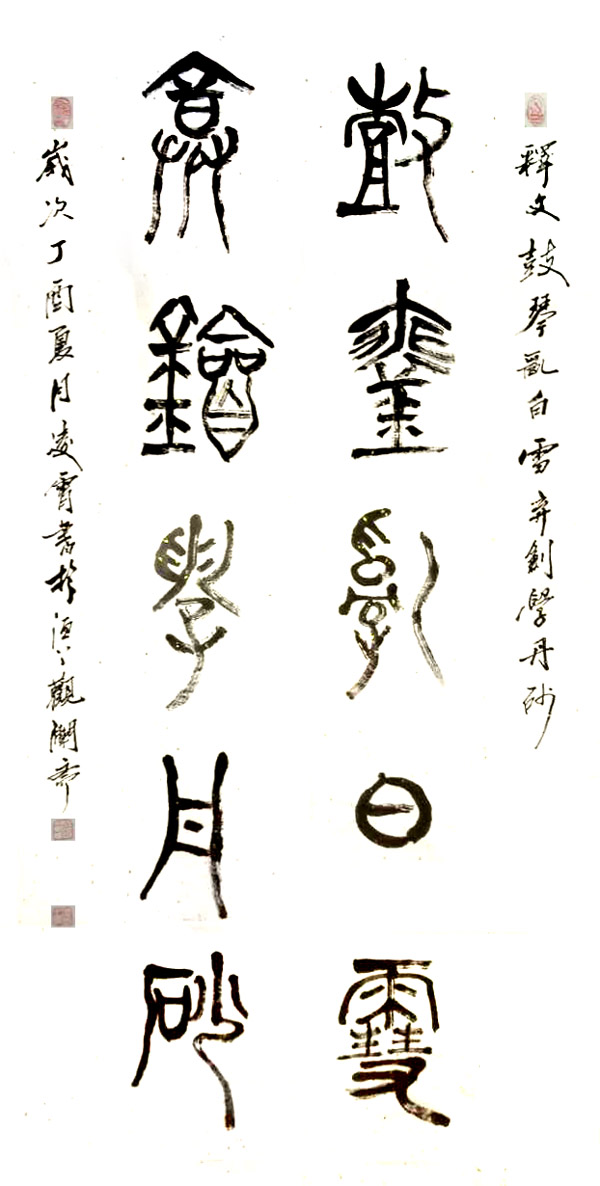 釋文鼓琴亂白雪弃劍學丹砂
鼓琴亂白雪
弃劍學丹砂
歲次丁酉夏月凌霄書於觀瀾齋